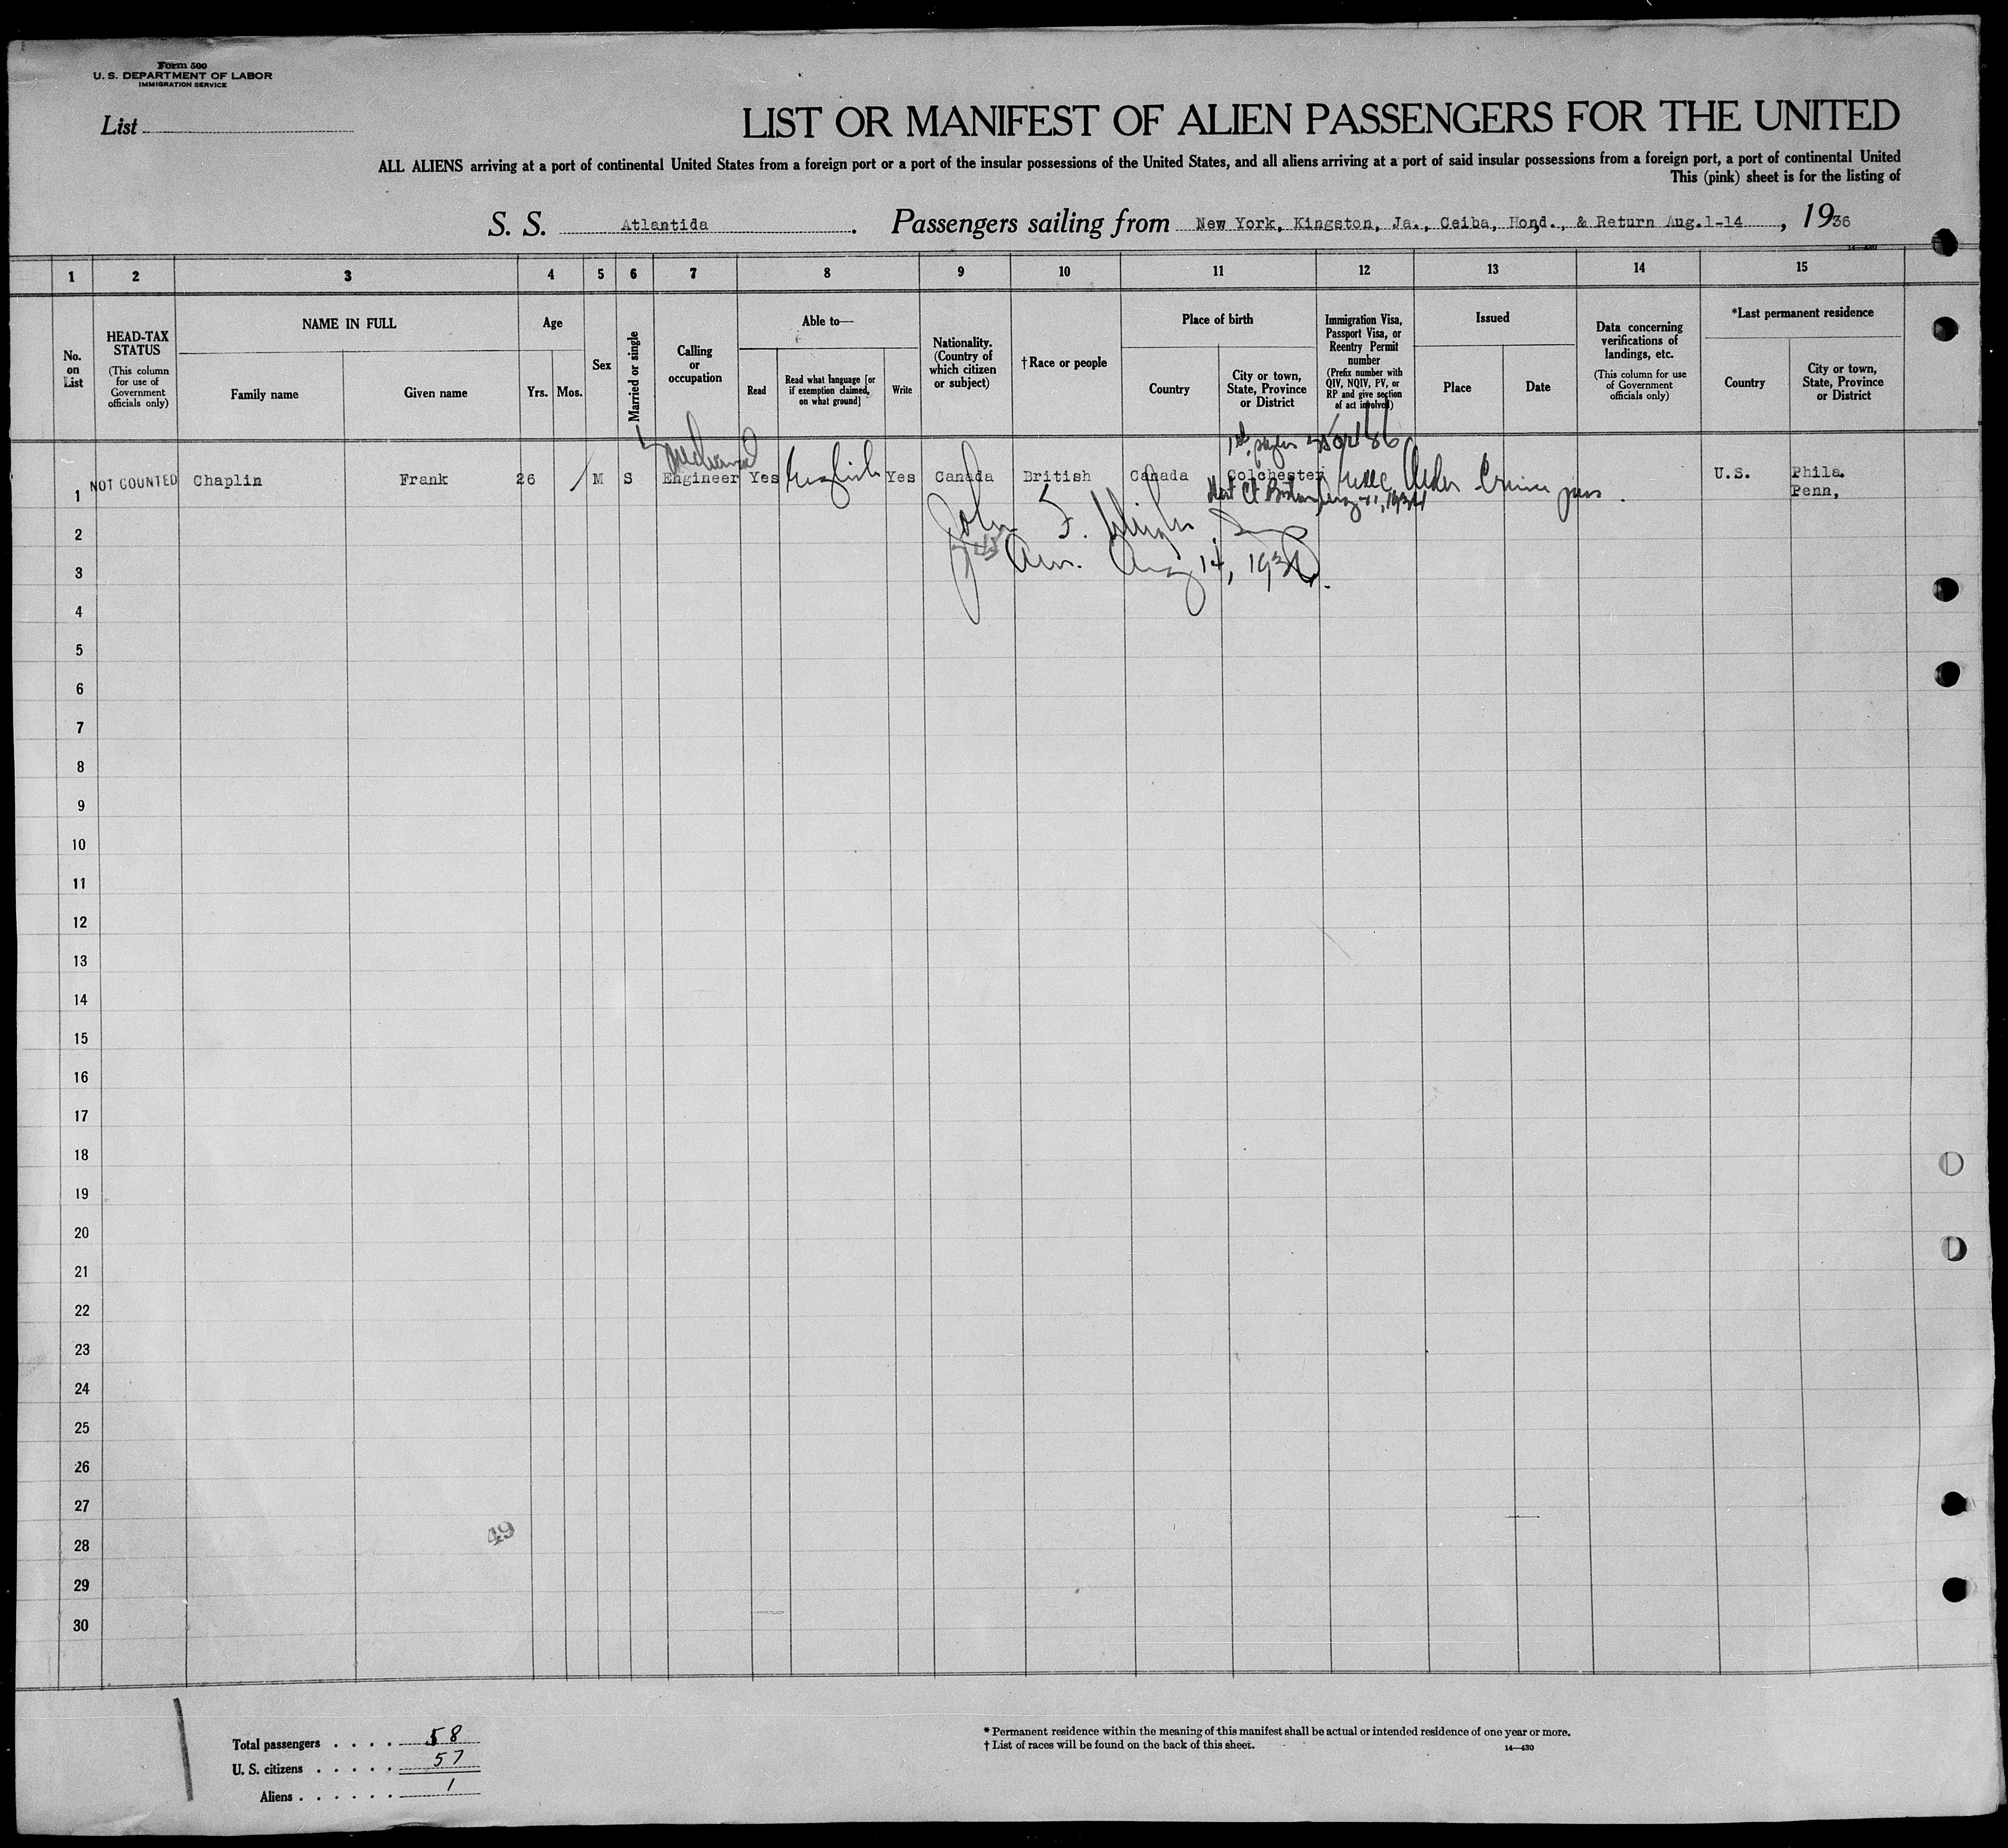 Form 500
U. S. DEPARTMENT OF LABOR
IMMIGRATION SERVICE
List
LIST OR MANIFEST OF ALIEN PASSENGERS FOR THE UNITED
ALL ALIENS arriving at a port of continental United States from a foreign port or a port of the insular possessions of the United States, and all aliens arriving at a port of said insular possessions from a foreign port, a port of continental United
This (pink) sheet is for the listing of
S. S. Atlantida. Passengers sailing from New York, Kingston, Ja., Ceiba, Hond., & Return Aug.1-14, 1936
14-430
1 2 3 4 5 6 7 8 9 10 11 12 13 14 15
No. on List
HEAD-TAX STATUS
(This column for use of Government officials only)
NAME IN FULL
Family name
Given name
Age
Yrs.
Mos.
Sex
Married or single
Calling or occupation
Able to—
Read
Read what language [or if exemption claimed, on what ground]
Write
Nationality. (Country of which citizen or subject)
†Race or people
Place of birth
Country
City or town, State, Province or District
Immigration Visa, Passport Visa, or Reentry Permit number
(Prefix number with QIV, NQIV, PV, or RP and give section of act involved)
Issued
Place
Date
Data concerning verifications of landings, etc.
(This column for use of Government officials only)
*Last permanent residence
Country
City or town, State, Province or District
Mechanical
1 NOT COUNTED Chaplin Frank 26 M S Engineer Yes English Yes Canada British Canada Colchester U.S. Phila. Penn,
2 John F.
3 Arr. Aug 14, 1936.
4
5
6
7
8
9
10
11
12
13
14
15
16
17
18
19
20
21
22
23
24
25
26
27
49
28
29
30
Total passengers . . . . 58
U. S. citizens . . . . . 57
Aliens . . . . . . 1
* Permanent residence within the meaning of this manifest shall be actual or intended residence of one year or more.
† List of races will be found on the back of this sheet.
14—430